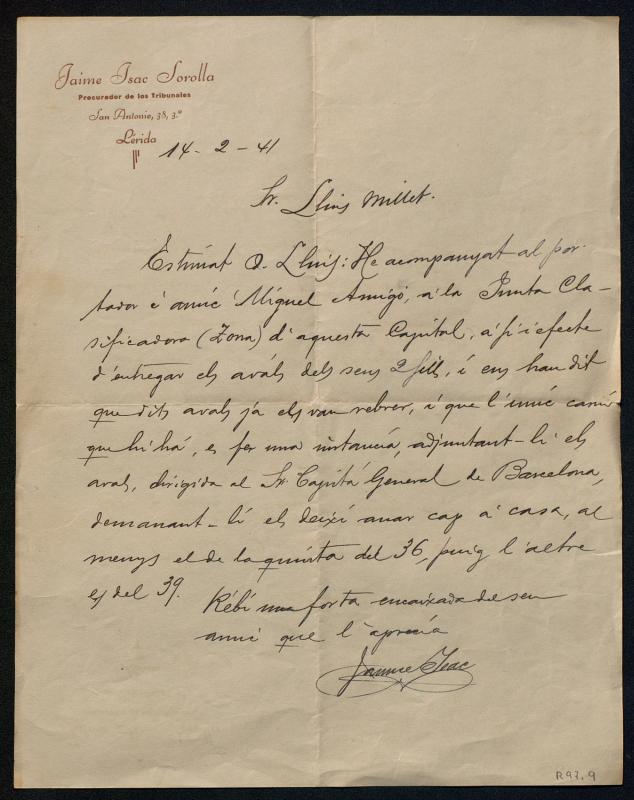 Jaime Isac Sorolla
Procurador de los Tribunales
San Antonio, 38, 3.º
Lérida
14 - 2 - 41
Sr. Lluis Millet.
Estimat D. Lluis: He acompanyat al por-
tador é amic Miguel Amigó, a la Junta Cla-
sificadora (Zona) d'aquesta Capital, a fi i efecte
d'entregar els avals dels seus 2 fills, i ens han dit
que dits avals ja els van rebrer, i que l'unic camí
que hi há, es fer una instancia, adjuntant-li els
avals, dirigida al Sr. Capitá General de Barcelona,
demanant-li els deixi anar cap a casa, al
menys el de la quinta del 36, puig l'altre
es del 39.
Rebi una forta encaixada del seu
amic que l'aprecia
Jaume Isac
R97.9